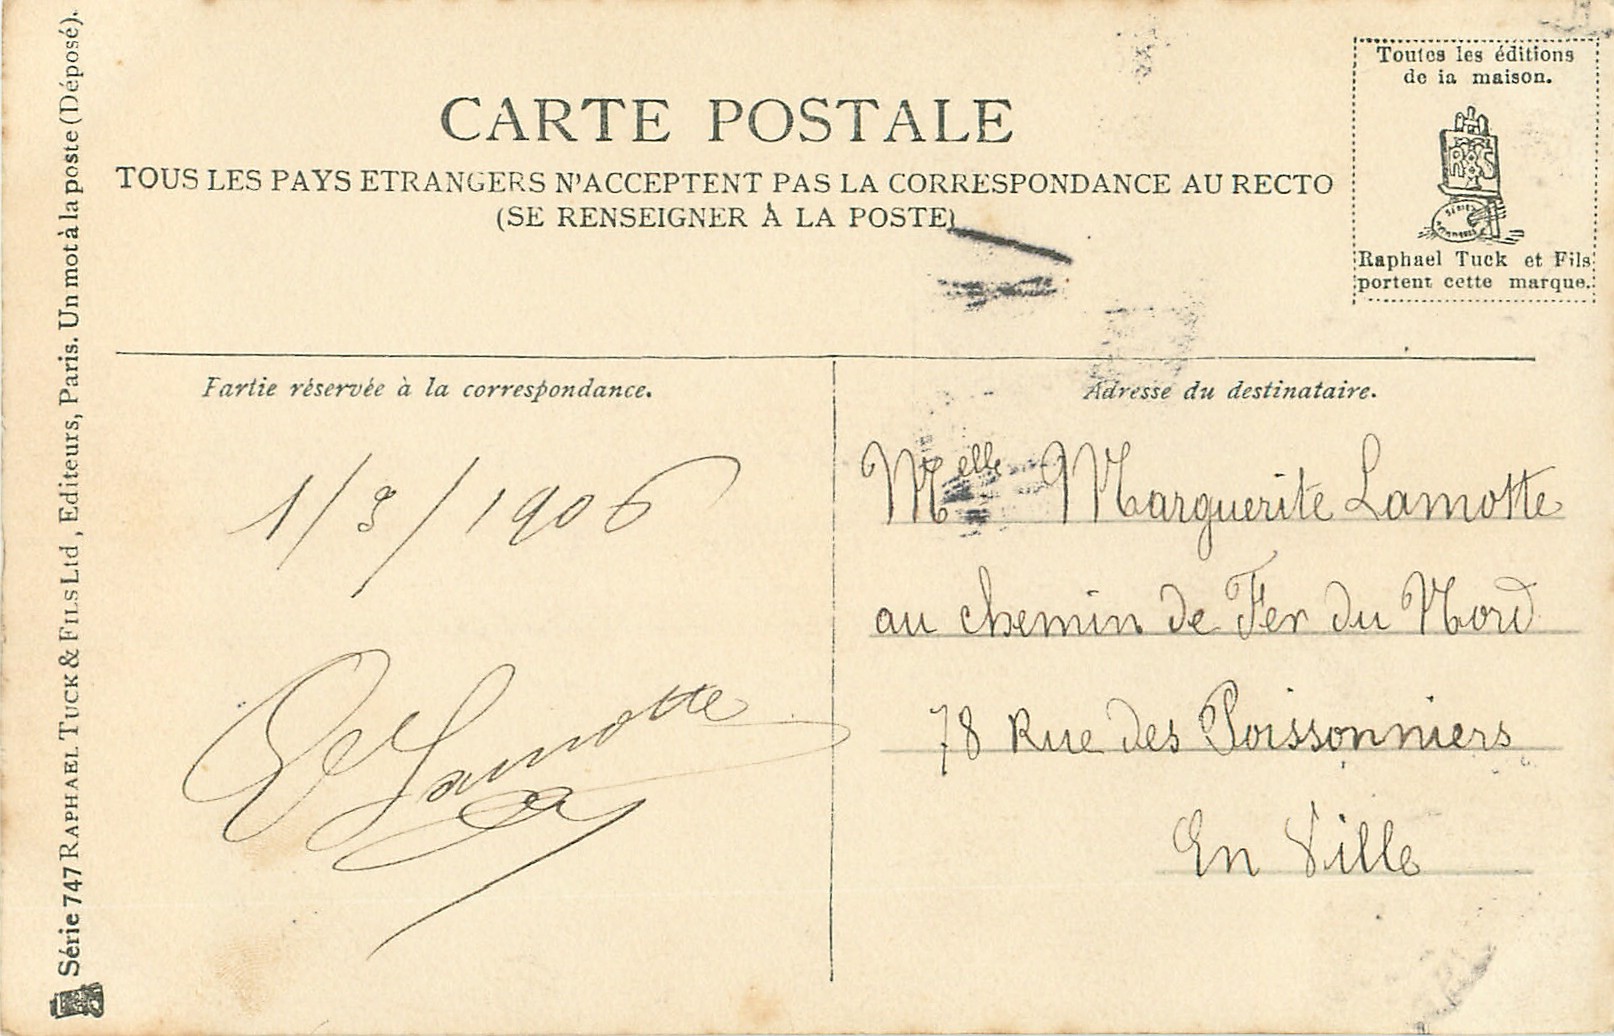 CARTE POSTALE
TOUS LES PAYS ETRANGERS N'ACCEPTENT PAS LA CORRESPONDANCE AU RECTO
(SE RENSEIGNER À LA POSTE)
Toutes les éditions
de la maison.
Raphael Tuck et Fils
portent cette marque.
Série 747 RAPHAEL TUCK & FILS Ltd, Editeurs, Paris. Un mot à la poste (Déposé).
Partie réservée à la correspondance.
1/3/1906
Lamotte
Adresse du destinataire.
Melle Marguerite Lamotte
au chemin de Fer du Nord
78 Rue des Poissonniers
En Ville